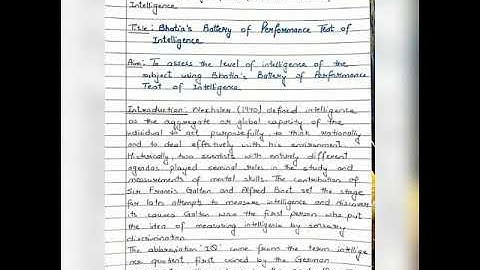 Intelligence
Title: Bhatia's Battery of Performance Test of
Intelligence
Aim: To assess the level of intelligence of the
subject using Bhatia's Battery of Performance
Test of Intelligence.
Introduction: Wechsler (1940) defined intelligence
as the aggregate or global capacity of the
individual to act purposefully, to think rationally
and to deal effectively with his environment.
Historically, two scientists with entirely different
agendas played seminal roles in the study and
measurements of mental skills. The contribution of
Sir Francis Galton and Alfred Binet set the stage
for later attempts to measure intelligence and discover
its causes. Galton was the first person who put
the idea of measuring intelligence by sensory
discrimination.
The abbreviation "IQ" came from the term intellige
nce quotient, first coined by the German